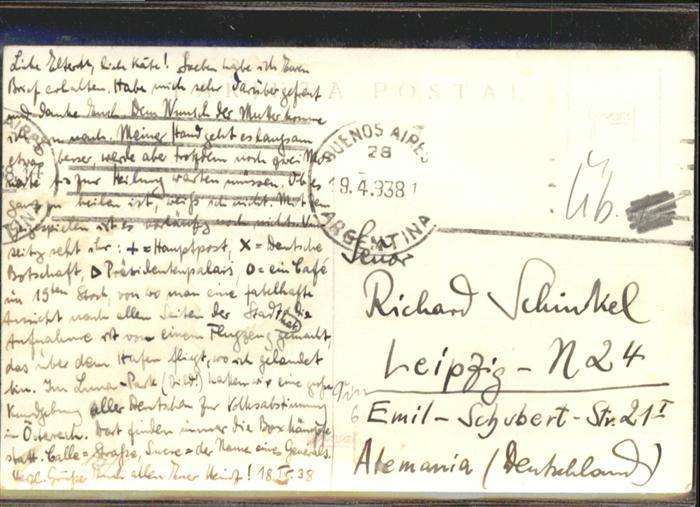 Liebe Eltern, liebe Käte! Soeben habe ich Euren
Brief erhalten. Habe mich sehr darüber gefreut
und danke Euch. Dem Wunsch der Mutter komme
ich nach. Meiner Hand geht es langsam
etwas besser, werde aber trotzdem noch zwei
bis zur Heilung warten müssen. Ob es
ganz zu heilen ist, weiß ich nicht. Mit
ist es vorläufig noch nicht.
seitz seht ihr: + = Hauptpost, x = Deutsche
Botschaft, Δ Präsidentenpalais, o = ein Café
im 15ten Stock, von wo man eine fabelhafte
Aussicht nach allen Seiten der Stadt hat. Die
Aufnahme ist von einem Flugzeug gemacht,
das über dem Hafen fliegt, wo ich gelandet
bin. Im Luna-Park (Bild!) hatten wir eine große
Kundgebung aller Deutschen zur Volksabstimmung
in Österreich. Dort finden immer die Boxkämpfe
statt. Calle = Straße, Sucre = der Name eines Generals.
Herzl. Grüße Euch allen Euer Heinz! 18.IV.38
POSTAL
BUENOS AIRES
28
19.4.938
ARGENTINA
Üb.
Señor
Richard Schinkel
Leipzig - N 24
Emil-Schubert-Str. 21 I
Alemania (Deutschland)